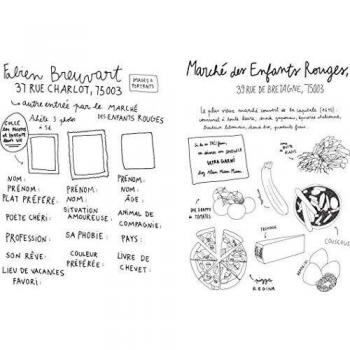 Fabien Breuvart
37 RUE CHARLOT, 75003
IMAGES & PORTRAITS
autre entrée par le MARCHÉ
DES ENFANTS ROUGES
Achète 3 photos
à 5€
COLLE
les photos
et invente
leur vie
NOM:
PRÉNOM:
PLAT PRÉFÉRÉ:
POÈTE CHÉRI:
PROFESSION:
SON RÊVE:
LIEU DE VACANCES
FAVORI:
PRÉNOM:
NOM:
SITUATION
AMOUREUSE:
SA PHOBIE:
COULEUR
PRÉFÉRÉE:
PRÉNOM:
NOM:
ÂGE:
ANIMAL DE
COMPAGNIE:
PAYS:
LIVRE DE
CHEVET:
Marché des Enfants Rouges,
39 RUE DE BRETAGNE, 75003
Le plus vieux marché couvert de la capitale (1615).
Si tu as très faim,
un SANDWICH
ULTRA GARNI
chez Alain Miam Miam
DES GRAPPES
DE TOMATES
FROMAGE
COUSCOUS
pizza
REGINA